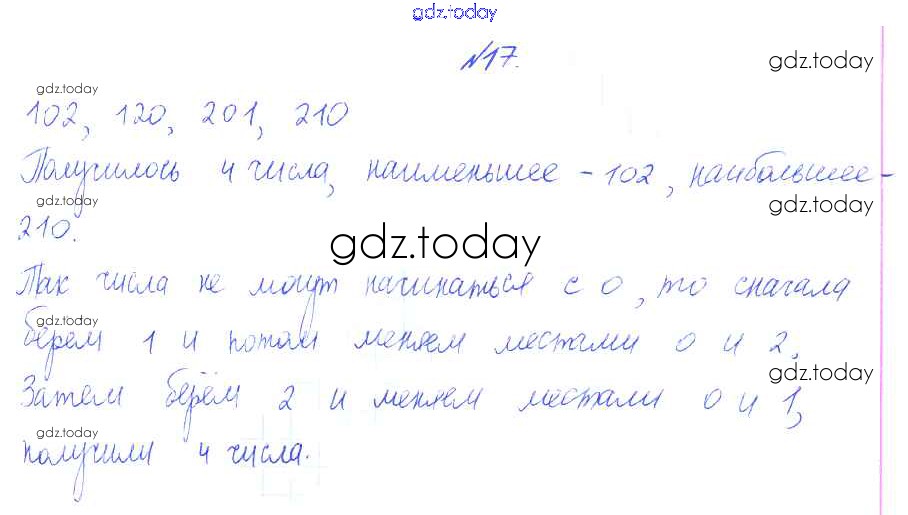 gdz.today
№17.
gdz.today
gdz.today
102, 120, 201, 210
Получилось 4 числа, наименьшее - 102, наибольшее -
gdz.today
gdz.today
210.
gdz.today
Так числа не могут начинаться с 0, то сначала
gdz.today
берем 1 и потом меняем местами 0 и 2.
gdz.today
Затем берём 2 и меняем местами 0 и 1,
gdz.today
получили 4 числа.